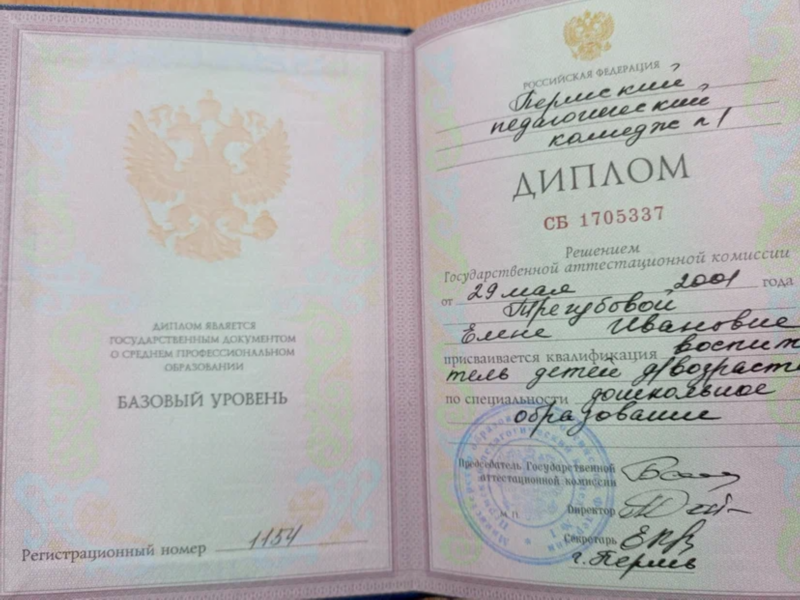 ДИПЛОМ ЯВЛЯЕТСЯ
ГОСУДАРСТВЕННЫМ ДОКУМЕНТОМ
О СРЕДНЕМ ПРОФЕССИОНАЛЬНОМ
ОБРАЗОВАНИИ
БАЗОВЫЙ УРОВЕНЬ
Регистрационный номер 1154
РОССИЙСКАЯ ФЕДЕРАЦИЯ
Пермский
педагогический
колледж n1
ДИПЛОМ
СБ 1705337
Решением
Государственной аттестационной комиссии
от 29 мая 2001 года
Трегубовой
Елене Ивановне
присваивается квалификация воспит
тель детей д/возраста
по специальности дошкольное
образование
Председатель Государственной
аттестационной комиссии
М.П.
Директор
Секретарь
г. Пермь